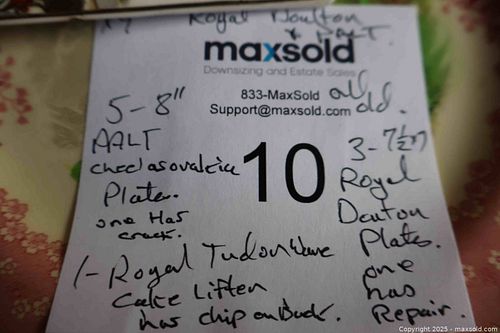 Royal Doulton
& AALT.
maxsold
Downsizing and Estate Sales
833-MaxSold
Support@maxsold.com
all old.
10
5-8"
AALT
checlasovalcia
Plates.
one Has
crack.
3-7½"
Royal
Doulton
Plates.
one
has
Repair.
1-Royal Tudor Ware
Cake Lifter
has chip on Back.
© Copyright 2025 - maxsold.com